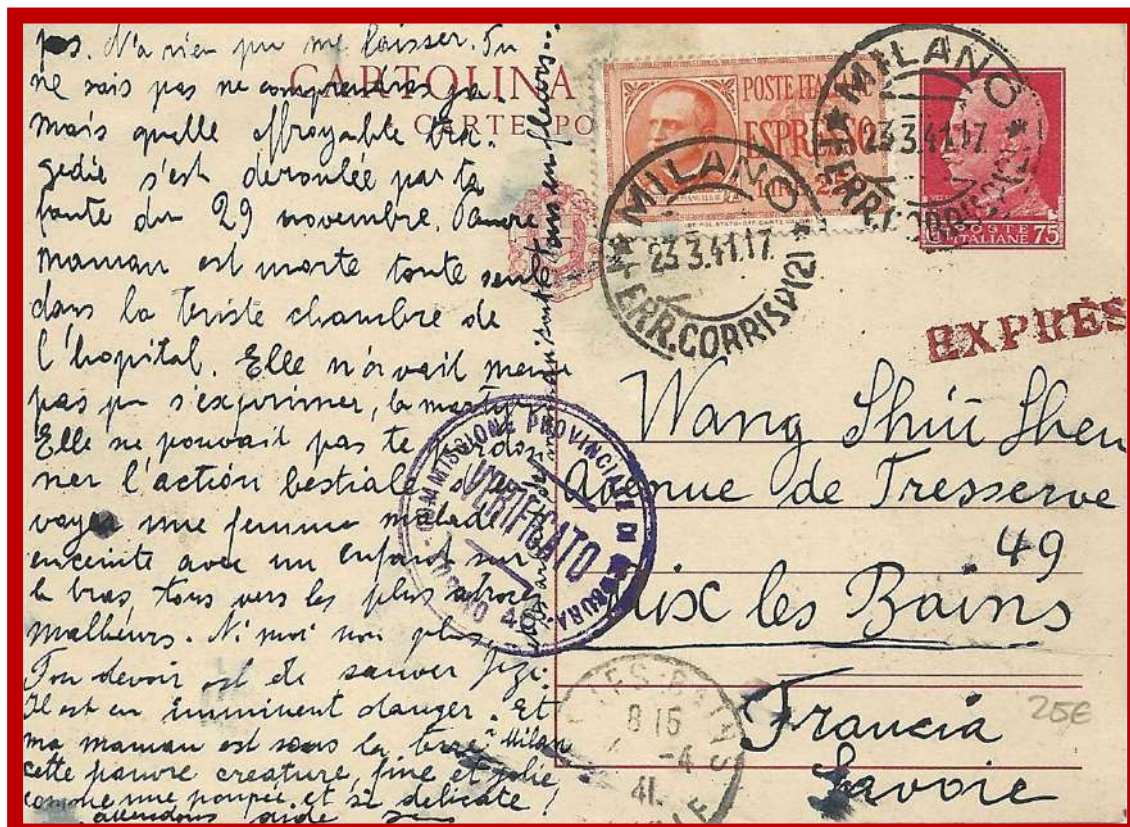 pas. N'a rien pu me laisser. Tu
ne sais pas ne comprendras ja-
mais quelle effroyable tra-
gedie s'est deroulée par ta
faute du 29 novembre. Pauvre
maman est morte toute seule
dans la triste chambre de
l'hopital. Elle n'avait meme
pas pu s'exprimer, la martyre
Elle ne pouvait pas te pardon-
ner l'action bestiale
voyer une femme malade
enceinte avec un enfant sur
le bras, tous vers les plus atroces
malheurs. Ni moi non plus.
Ton devoir est de sauver
Il est en imminent danger. Et
ma maman est sous la terre à Milan
cette pauvre creature, fine et jolie
comme une poupée et si delicate!
attendons aide
CARTOLINA
CARTE PO
POSTE ITALIANE
ESPRESSO
LIRE
MILANO
23 3.41.17
FERR.CORRISP.(2)
MILANO
23 3.41.17
FERR.CORRISP
POSTE
ITALIANE 75
EXPRES
Wang Shui Shen
Avenue de Tresserve
49
Aix les Bains
Francia
Savoie
25€
COMMISSIONE PROVINCIALE DI CENSURA
VERIFICATO
LES-BAINS
8 15
-4
41